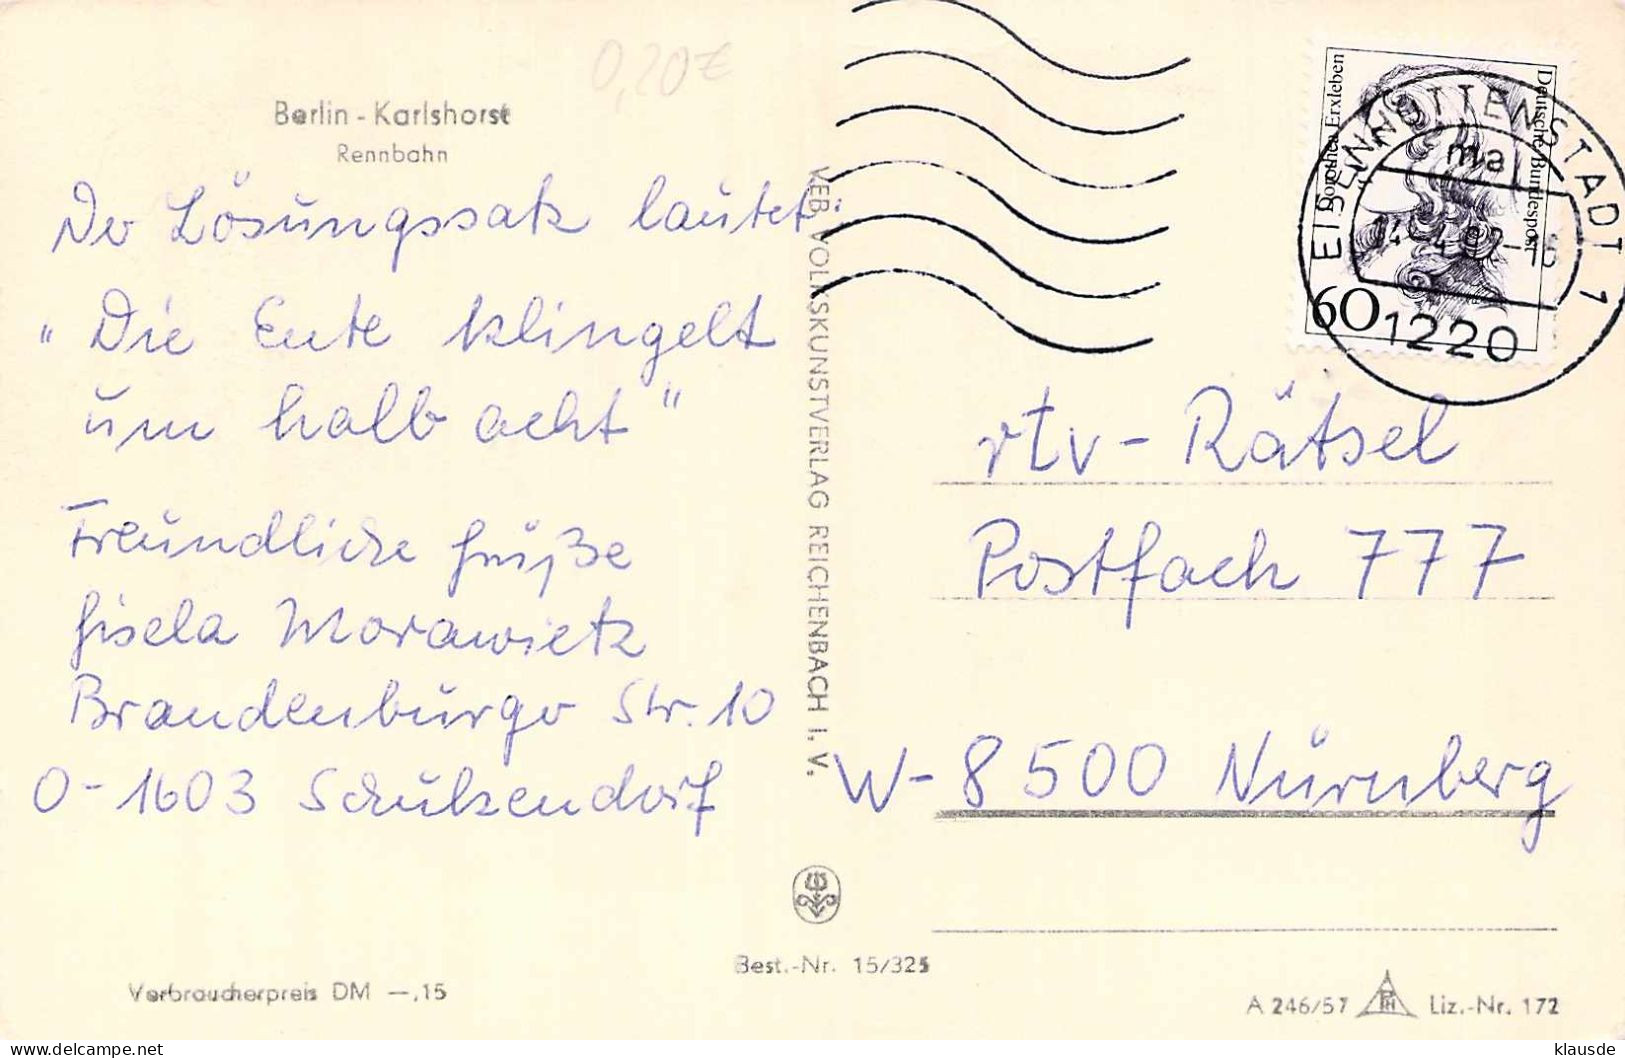 0,20€
Berlin - Karlshorst
Rennbahn
Der Lösungssatz lautet:
"Die Ente klingelt
um halb acht"
Freundliche Grüße
Gisela Morawietz
Brandenburger Str. 10
O-1603 Schulzendorf
Verbraucherpreis DM —,15
VEB VOLKSKUNSTVERLAG REICHENBACH I. V.
Best.-Nr. 15/325
Dorothea Erxleben
Deutsche Bundespost
60
EISENHÜTTENSTADT 1
ma
1220
rtv-Rätsel
Postfach 777
W-8500 Nürnberg
A 246/57 PH Liz.-Nr. 172
delcampe.net
klausde